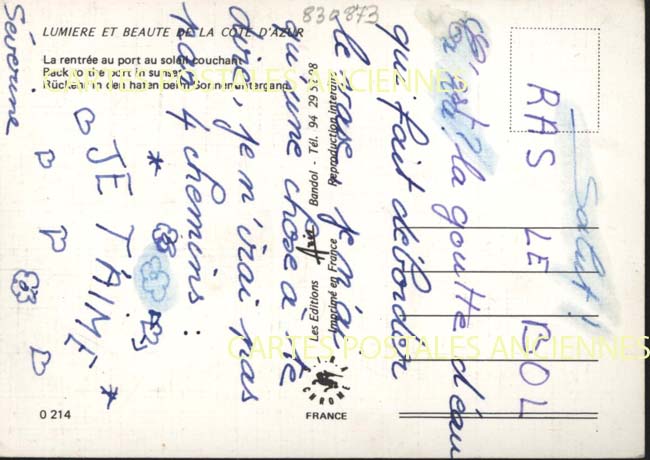 LUMIERE ET BEAUTE DE LA COTE D'AZUR
La rentrée au port au soleil couchant
Back to the port in sunset
Rückkehr in den hafen beim Sonnenuntergang
838873
Salut !
RAS LE BOL
C'est la goutte d'eau
qui fait déborder
le vase je n'ai
qu'une chose à te
dire, je n'irai pas
par 4 chemins :
* JE T'AIME *
Séverine
Les Editions Azur Bandol - Tél. 94 29
Imprimé en France Reproduction Interdite
CHROME
FRANCE
0 214
CARTES POSTALES ANCIENNES
CARTES POSTALES ANCIENNES